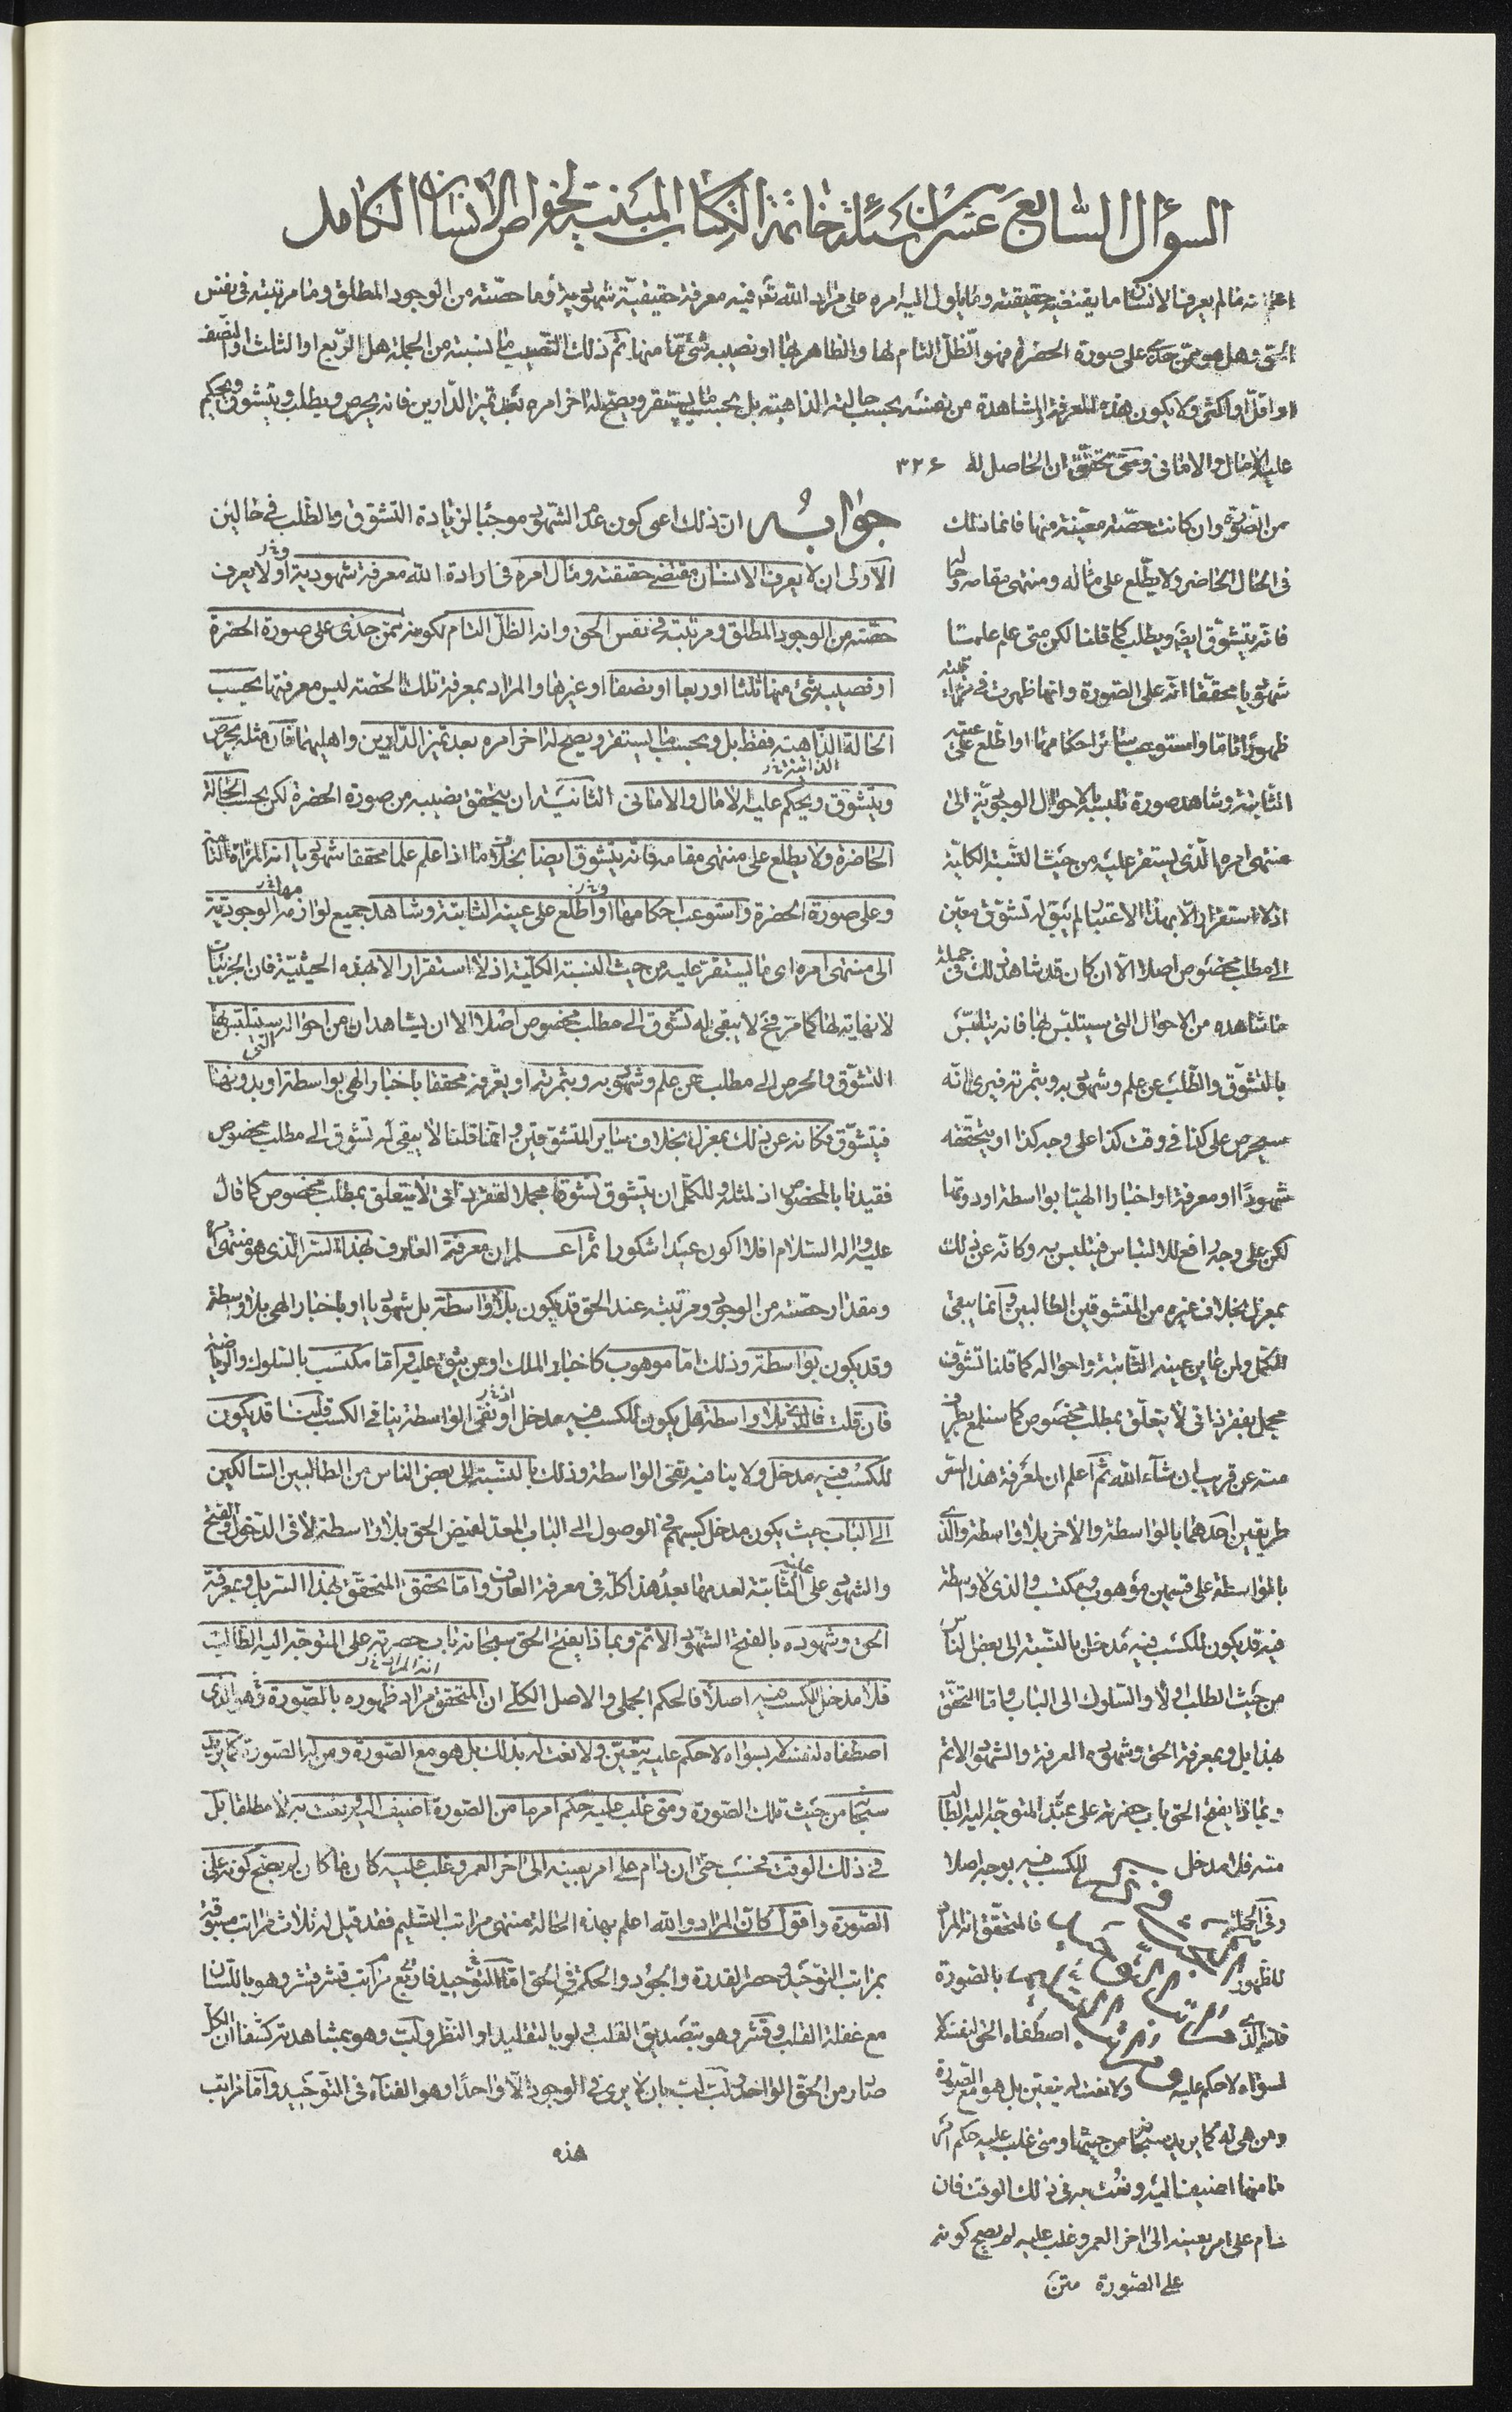 السؤال السابع عشر من اسئلة خاتمة الكتاب المبنية لخواص الانسان الكامل
اعلم انه ما لم يعرف الانسان ما يقتضيه حقيقته وما يأول اليه امره على مراد الله تعه فيه معرفة حقيقيّة شهودية وما حصّته من الوجود المطلق وما مرتبته في نفس
الحق وهل هو ممّن حذى على صورة الحضرة فهو الظلّ التام لها والظاهر بها او نصيبه شئ ما منها ثم ذلك النّصيب ما نسبته من الجملة هل الرّبع او الثلث او النصف
او اقلّ او اكثر ولا يكون هذه المعرفة والمشاهدة من نفسه بحسب حالته الذاهبة بل بحسب ما يستقر ويصحّ له اخر امره بعد تميز الدّارين فانه يحرص ويطلب ويتشوق ويحكم
عليه الآمال والاماني ومتى تحقّق ان الحاصل له ٣٢٦
من الصّورة وان كانت حصّته معيّنة منها فانما ذلك
في الحال الحاضر ولا يطّلع على مثاله ومنتهى مقامه وحاله
فانه يتشوّق ايضه ويطلب كما قلنا لكن متى علم علما
شهوديا محققا انه على الصّورة وانها ظهرت في مرآته
ظهورا تاما واستوعب سائر احكامها او اطّلع على عينه
الثّابتة وشاهد صورة تلبسه بالاحوال الوجوديّة الى
منتهى امره الّذى يستقر عليه من حيث النّسبة الكليّة
اذ لا استقرار الّا بهذا الاعتبار لم يبق له تشوّق معيّن
الى مطلب مخصوص اصلا الّا ان كان قد شاهد ذلك في جملة
ما شاهده من الاحوال التي سيتلبّس بها فانه يتلبّس
بالتشوّق والطّلب عن علم وشهود به وبثمرته فيرى انّه
سيحرص على كذا في وقت كذا على وجه كذا او يتحققه
شهودًا او معرفة او اخبارا الهيّا بواسطة او دونها
لكن على وجه رافع للالتباس فيتلبس به وكانه عن ذلك
بمعزل بخلاف غيره من المتشوقين الطالبين وانما يبقى
للكمّل ولمن عاين عينه الثّابتة واحواله كما قلنا تشوّق
مجمل بفقر ذاتي لا يتعلّق بمطلب مخصوص كما سنلمع بطرف
منه عن قريب ان شاء الله ثم اعلم ان لمعرفة هذا السّر
طريقين احدهما بالواسطة والاخر بلا واسطة والّذى
بالواسطة على قسمين موهوب ومكتسب والذى لا واسطة
فيه قد يكون للكسب فيه مدخل بالنّسبة الى بعض الناس
من حيث الطلب اوّلا والسّلوك الى الباب واما التحقّق
بهذا بل وبمعرفة الحق وشهوده المعرفة والشهود الاتم
وبماذا يفتح الحق باب حضرته على عبده المتوجّه اليه الطالب
منه فلا مدخل للكسب فيه بوجه اصلا
وفي الجملة فالمتحقّق انه المراد
للظهور بالصّورة
فانه الذى اصطفاه الحق لنفسه لا
لسواه لا حكم عليه ولا نعت له يتعين بل هو مع الصّورة
ومن هى له كما يريد سبحانه من حيثها ومتى غلب عليه حكم امر
ما منها اضيف اليه ونعت به في ذلك الوقت فان
دام على امر بعينه الى اخر العمر وغلب عليه لم يصح كونه
على الصّورة متن
جوابه ان ذلك اعنى كون عدم الشهود موجبًا لزيادة التشوق والطلب في حالين
الاولى ان لا يعرف الانسان مقتضى حقيقته ومآل امره في ارادة الله معرفة شهودية او لا يعرف
حصّته من الوجود المطلق ومرتبته في نفس الحق وانه الظلّ التام لكونه ممّن حذى على صورة الحضرة
او نصيبه شئ منها ثلثا او ربعا او نصفا او غيرها والمراد بمعرفة تلك الحصّة ليس معرفتها بحسب
الحالة الذاهبة فقط بل وبحسب ما يستقر ويصح له اخر امره بعد تميز الدّارين واهليهما فان مثله يحرص
ويتشوق ويحكم عليه الآمال والاماني الثانية ان يتحقق بنصيبه من صورة الحضرة لكن بحسب الحالة
الحاضرة ولا يطلع على منتهى مقامه فانه يتشوق ايضا بخلاف ما اذا علم علما محققا شهوديا انه المرآة التامة
وعلى صورة الحضرة واستوعب احكامها او اطلع على عينه الثابتة وشاهد جميع لوازمه الوجوديّة
الى منتهى امره اى ما يستقرّ عليه من حيث النسبة الكليّة اذ لا استقرار الا بهذه الحيثيّة فان الجزئيات
لا نهاية لها كما مرّ فح لا يبقى له تشوق الى مطلب مخصوص اصلا الا ان يشاهد ان من احواله التي سيتلبّس بها
التشوّق والحرص الى مطلب عن علم وشهود به وبثمرته او يعرفه محققا باخبار الهى بواسطة او بدونها
فيتشوّق وكانه عن ذلك بمعزل بخلاف ساير المتشوقين وانما قلنا لا يبقى له تشوق الى مطلب مخصوص
فقيدنا بالمخصوص اذ لمثله وللكمّل ان يتشوق تشوقا مجملا لفقر ذاتي لا يتعلق بمطلب مخصوص كما قال
عليه واله السّلام افلا اكون عبدا شكورا ثم اعلم ان معرفة العارف لهذا السّر الّذى هو منتهى امره
ومقدار حصّته من الوجود ومرتبته عند الحق قد يكون بلا واسطة بل شهوديا او باخبار الهى بلا واسطة
وقد يكون بواسطة وذلك امّا موهوب كاخبار الملك او من يثق عليه واما مكتسب بالسّلوك والرياضة
فان قلت فالذى بلا واسطة هل يكون للكسب فيه مدخل او نفى الواسطة ينافي الكسب قلنا قد يكون
للكسب فيه مدخل ولا ينافيه نفى الواسطة وذلك بالنسبة الى بعض الناس من الطالبين السّالكين
الى الباب حيث يكون مدخل كسبهم في الوصول الى الباب المعدّ لفيض الحق بلا واسطة لا في الدّخول والفتح
والشهود على الثّابتة لعدمها بعد هذا كلّه في معرفة العارف واما تحقق المتحقّق بهذا السّر بل وبمعرفة
الحق وشهوده بالفتح الشّهود الاتم وبماذا يفتح الحق سبحانه باب حضرته على المتوجّه اليه الطالب
فلا مدخل للكسب فيه اصلا فالحكم الجملى والاصل الكلّى ان المتحقق مراد ظهوره بالصّورة وهو الذى
اصطفاه لنفسه لا لسواه لا حكم عليه يتعيّن ولا نعت له بذلك بل هو مع الصّورة ومن له الصّورة كما يريد
سبحانه من حيث تلك الصّورة ومتى غلب عليه حكم امر ما من الصّورة اضيف اليه ونعت به لا مطلقا بل
في ذلك الوقت فحسب حتى ان دام على امر بعينه الى اخر العمر وغلب عليه كائنا ما كان لم يصح كونه على
الصّورة واقول كان المراد والله اعلم بهذه الحالة منتهى مراتب التسليم فقد قيل له ثلاث مراتب مسبوقة
بمراتب التوحيد وحصر القدرة والجود والحكمة في الحق امّا التّوحيد فاربع مراتب قشر قشر وهو باللّسان
مع غفلة القلب وقشر وهو بتصديق القلب ولو بالتقليد او النظر ولبّ وهو بمشاهدته كشفا ان الكلّ
صادر من الحقّ الواحد ولبّ لبّ بان لا يرى في الوجود الّا واحدًا وهو الفناء في التّوحيد وامّا مراتب
هذه